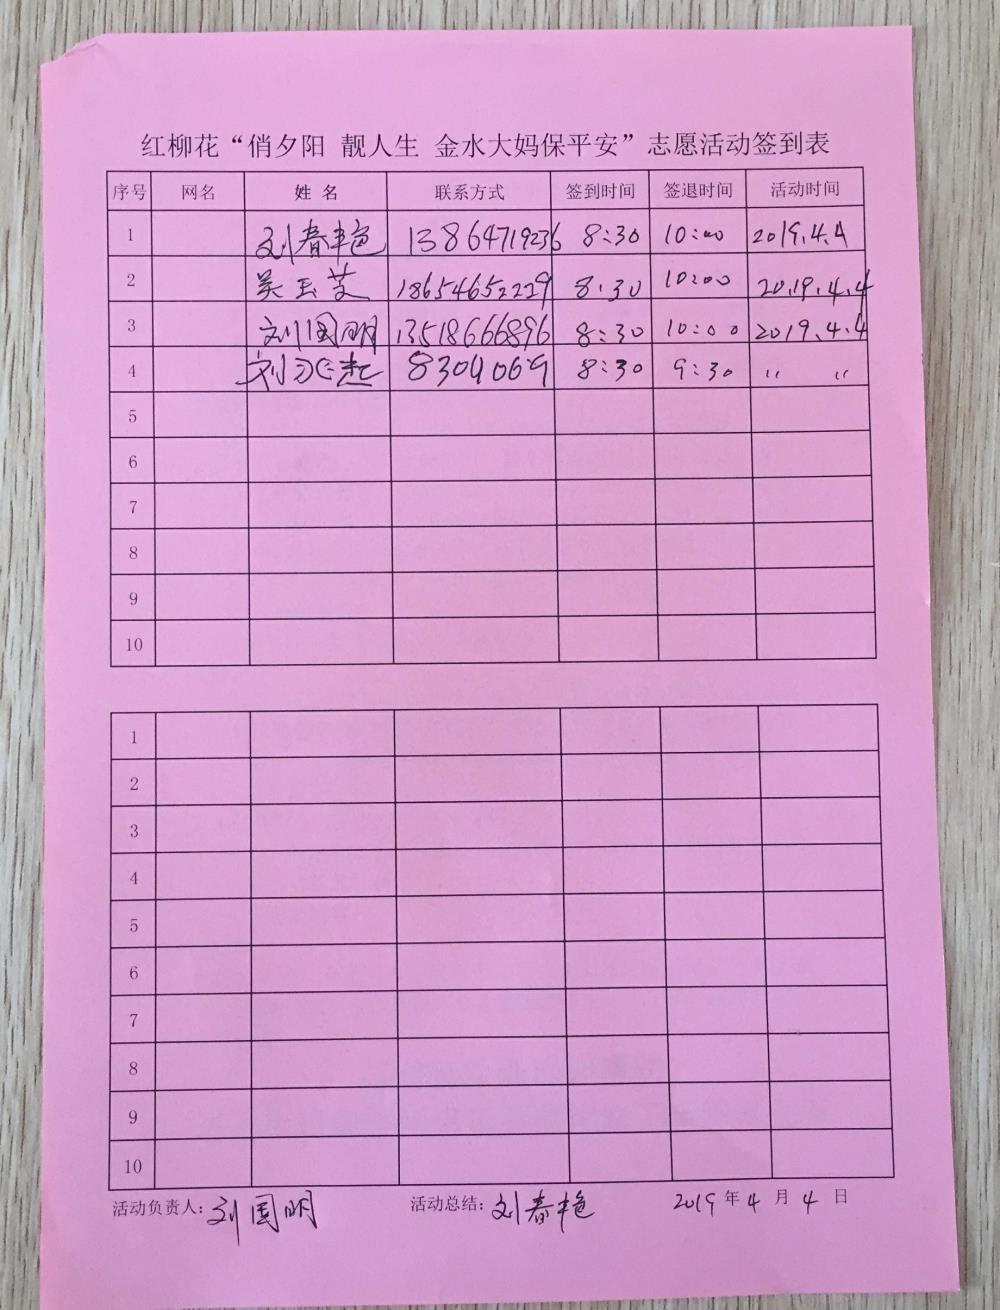 红柳花“俏夕阳 靓人生 金水大妈保平安”志愿活动签到表
序号 网名 姓 名 联系方式 签到时间 签退时间 活动时间
1 刘春艳 13864719236 8:30 10:00 2019.4.4
2 吴玉芝 18654652229 8:30 10:00 2019.4.4
3 刘国明 13518666896 8:30 10:00 2019.4.4
4 8304069 8:30 9:30 〃 〃
5
6
7
8
9
10
1
2
3
4
5
6
7
8
9
10
活动负责人：刘国明 活动总结：刘春艳 2019年4月4日